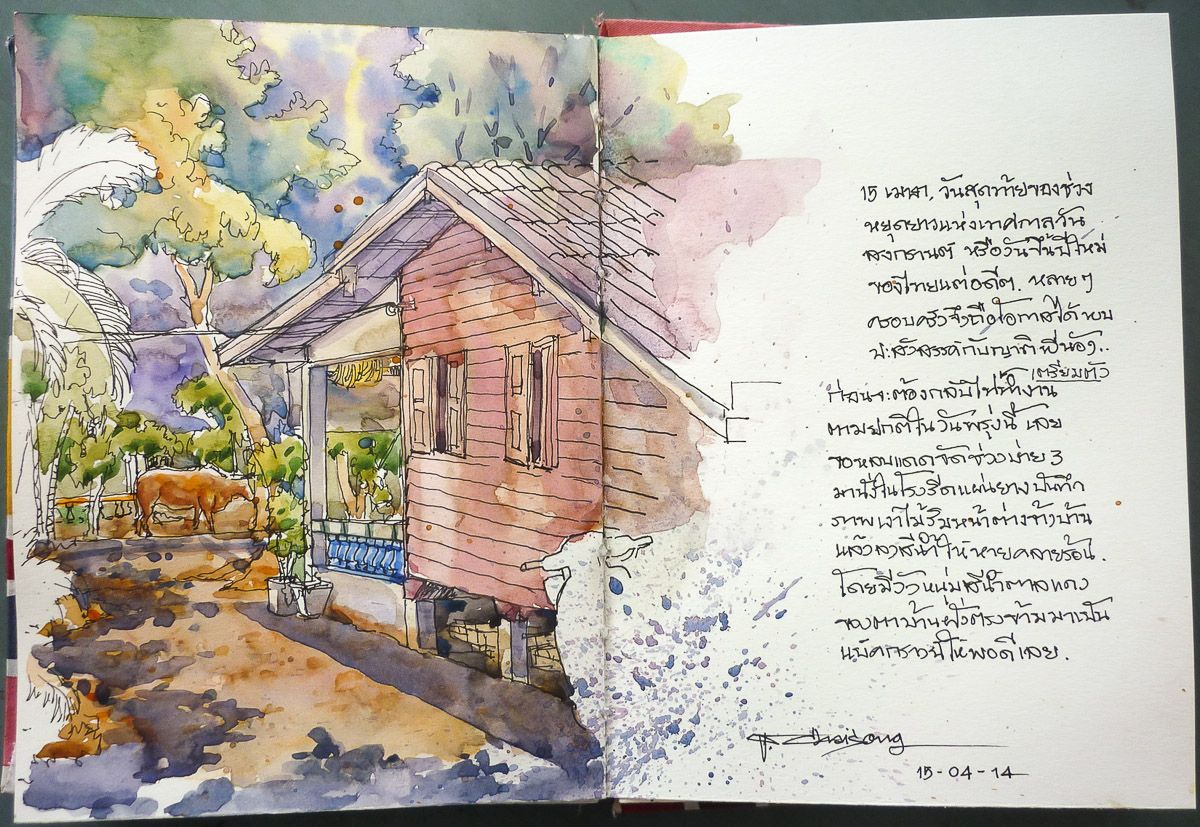 15 เมษา, วันสุดท้ายของช่วง
หยุดยาวแห่งเทศกาลวัน
สงกรานต์ หรือวันขึ้นปีใหม่
ของไทยแต่อดีต. หลายๆ
ครอบครัวจึงถือโอกาสได้พบ
ปะสังสรรค์กับญาติพี่น้อง..
ก่อนจะต้องกลับไปทำงาน
เตรียมตัว
ตามปกติในวันพรุ่งนี้ เลย
ขอหลบแดดจัดช่วงบ่าย 3
มานั่งในโรงรีดแผ่นยาง บันทึก
ภาพเงาไม้ริมหน้าต่างข้างบ้าน
แล้วลงสีน้ำให้หายคลายร้อน.
โดยมีวัวหนุ่มสีน้ำตาลแดง
ของตาบ้านฝั่งตรงข้ามมาเป็น
แบ็คกราวน์ให้พอดีเลย.
15-04-14